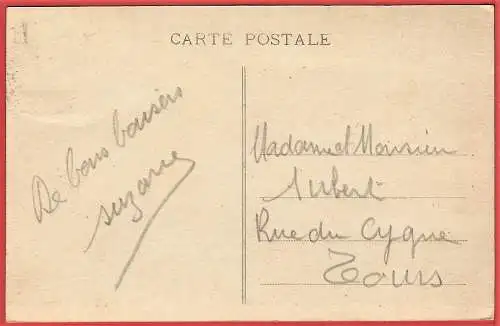 CARTE POSTALE
De bons baisers
suzanne
Madame et Monsieur
Aubert
Rue du Cygne
Tours